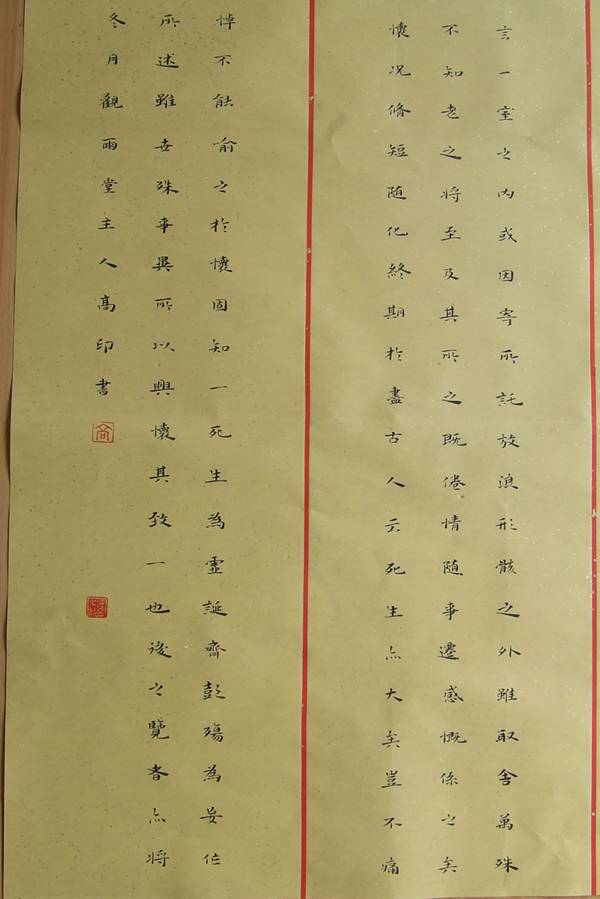 言一室之內或因寄所託放浪形骸之外雖取舍萬殊
不知老之將至及其所之既倦情隨事遷感慨係之矣
懷況脩短随化終期於盡古人云死生亦大矣豈不痛
悼不能喻之於懷固知一死生為虛誕齊彭殤為妄作
所述雖世殊事異所以興懷其致一也後之覽者亦將
冬月觀雨堂主人高印書